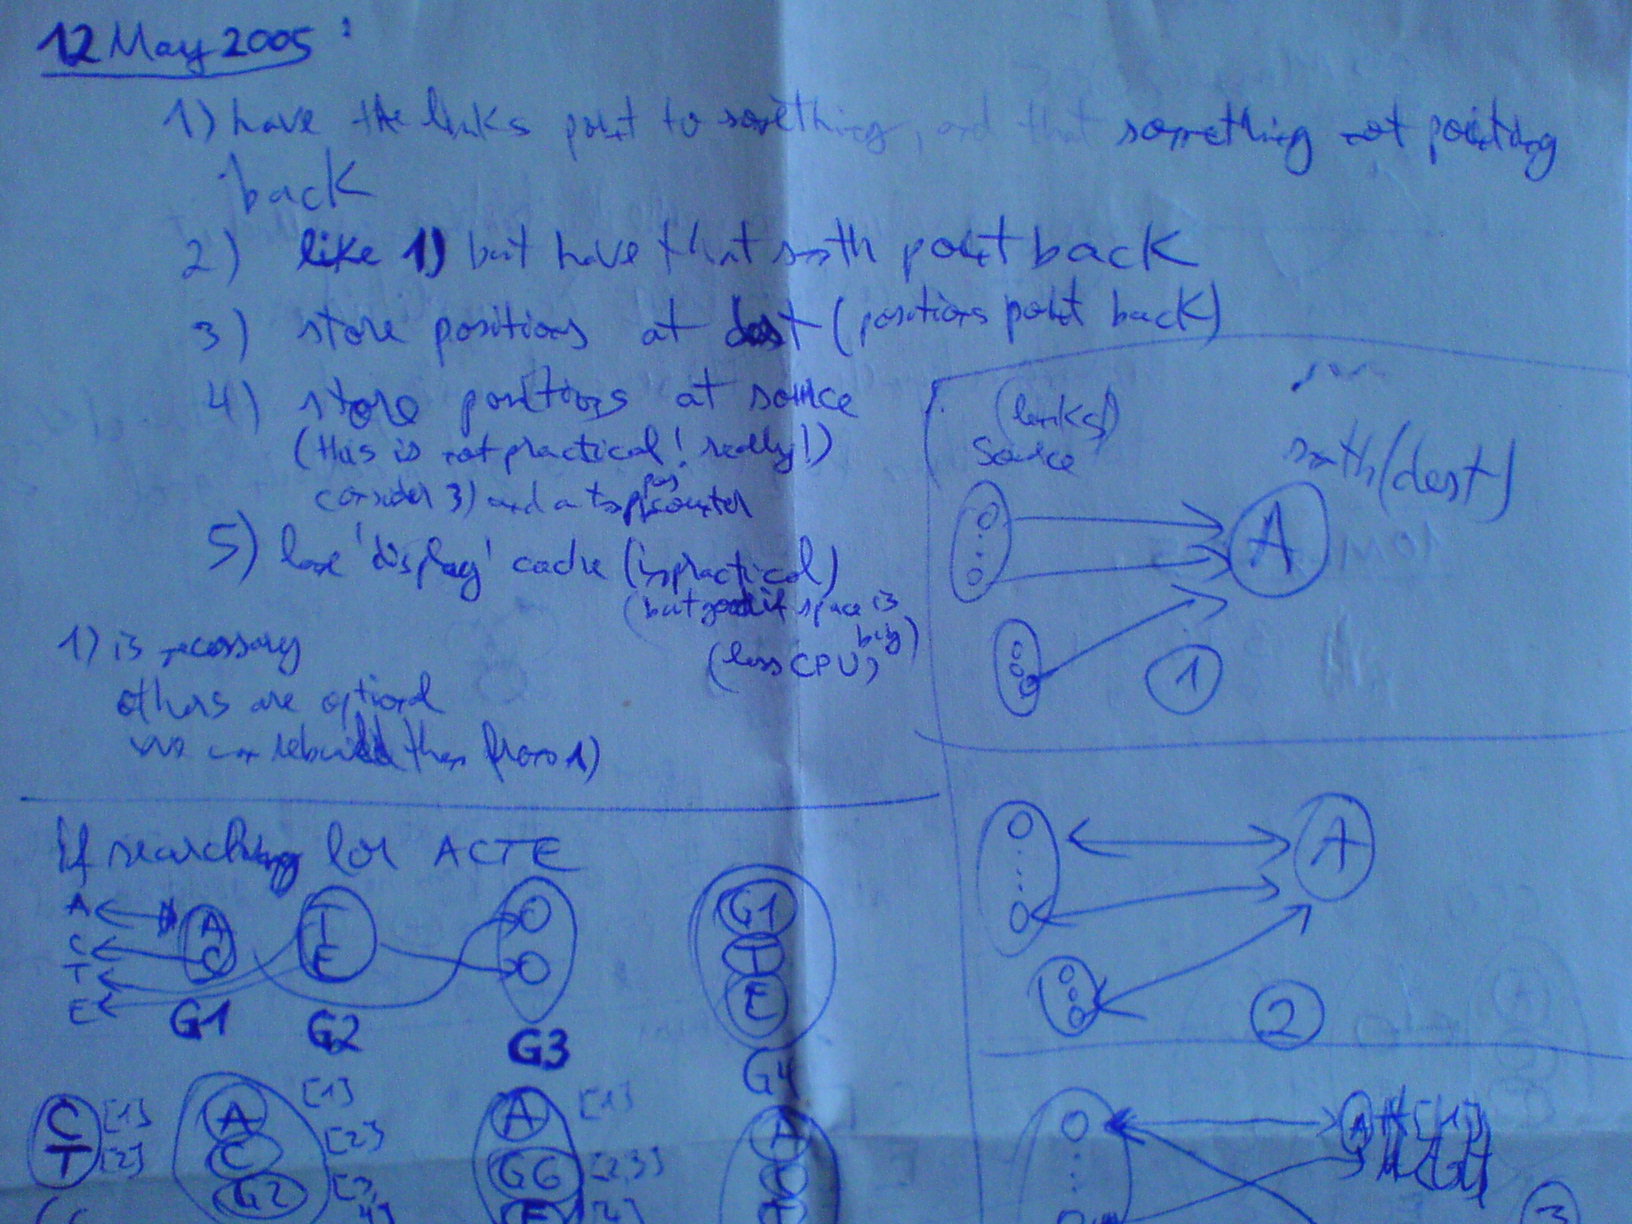 12 May 2005:
1) have the links point to something, and that something not pointing
back
2) like 1) but have that smth point back
3) store positions at dest (positions point back)
4) store positions at source
(this is not practical! really!)
consider 3) and a tmp pos counter
5) have 'display' cache (impractical)
(but good if space is
big)
(less CPU)
1) is necessary
others are optional
we can rebuild them from 1)
(links)
Source
smth (dest)
A
1
A
2
If searching for ACTE
A
C
T
E
A
C
G1
T
E
G2
G3
G1
T
E
G4
C [1]
T [2]
A [1]
C [2]
G2 [3,
4]
A [1]
G6 [2,3]
E [4]
A
C
T
A
3